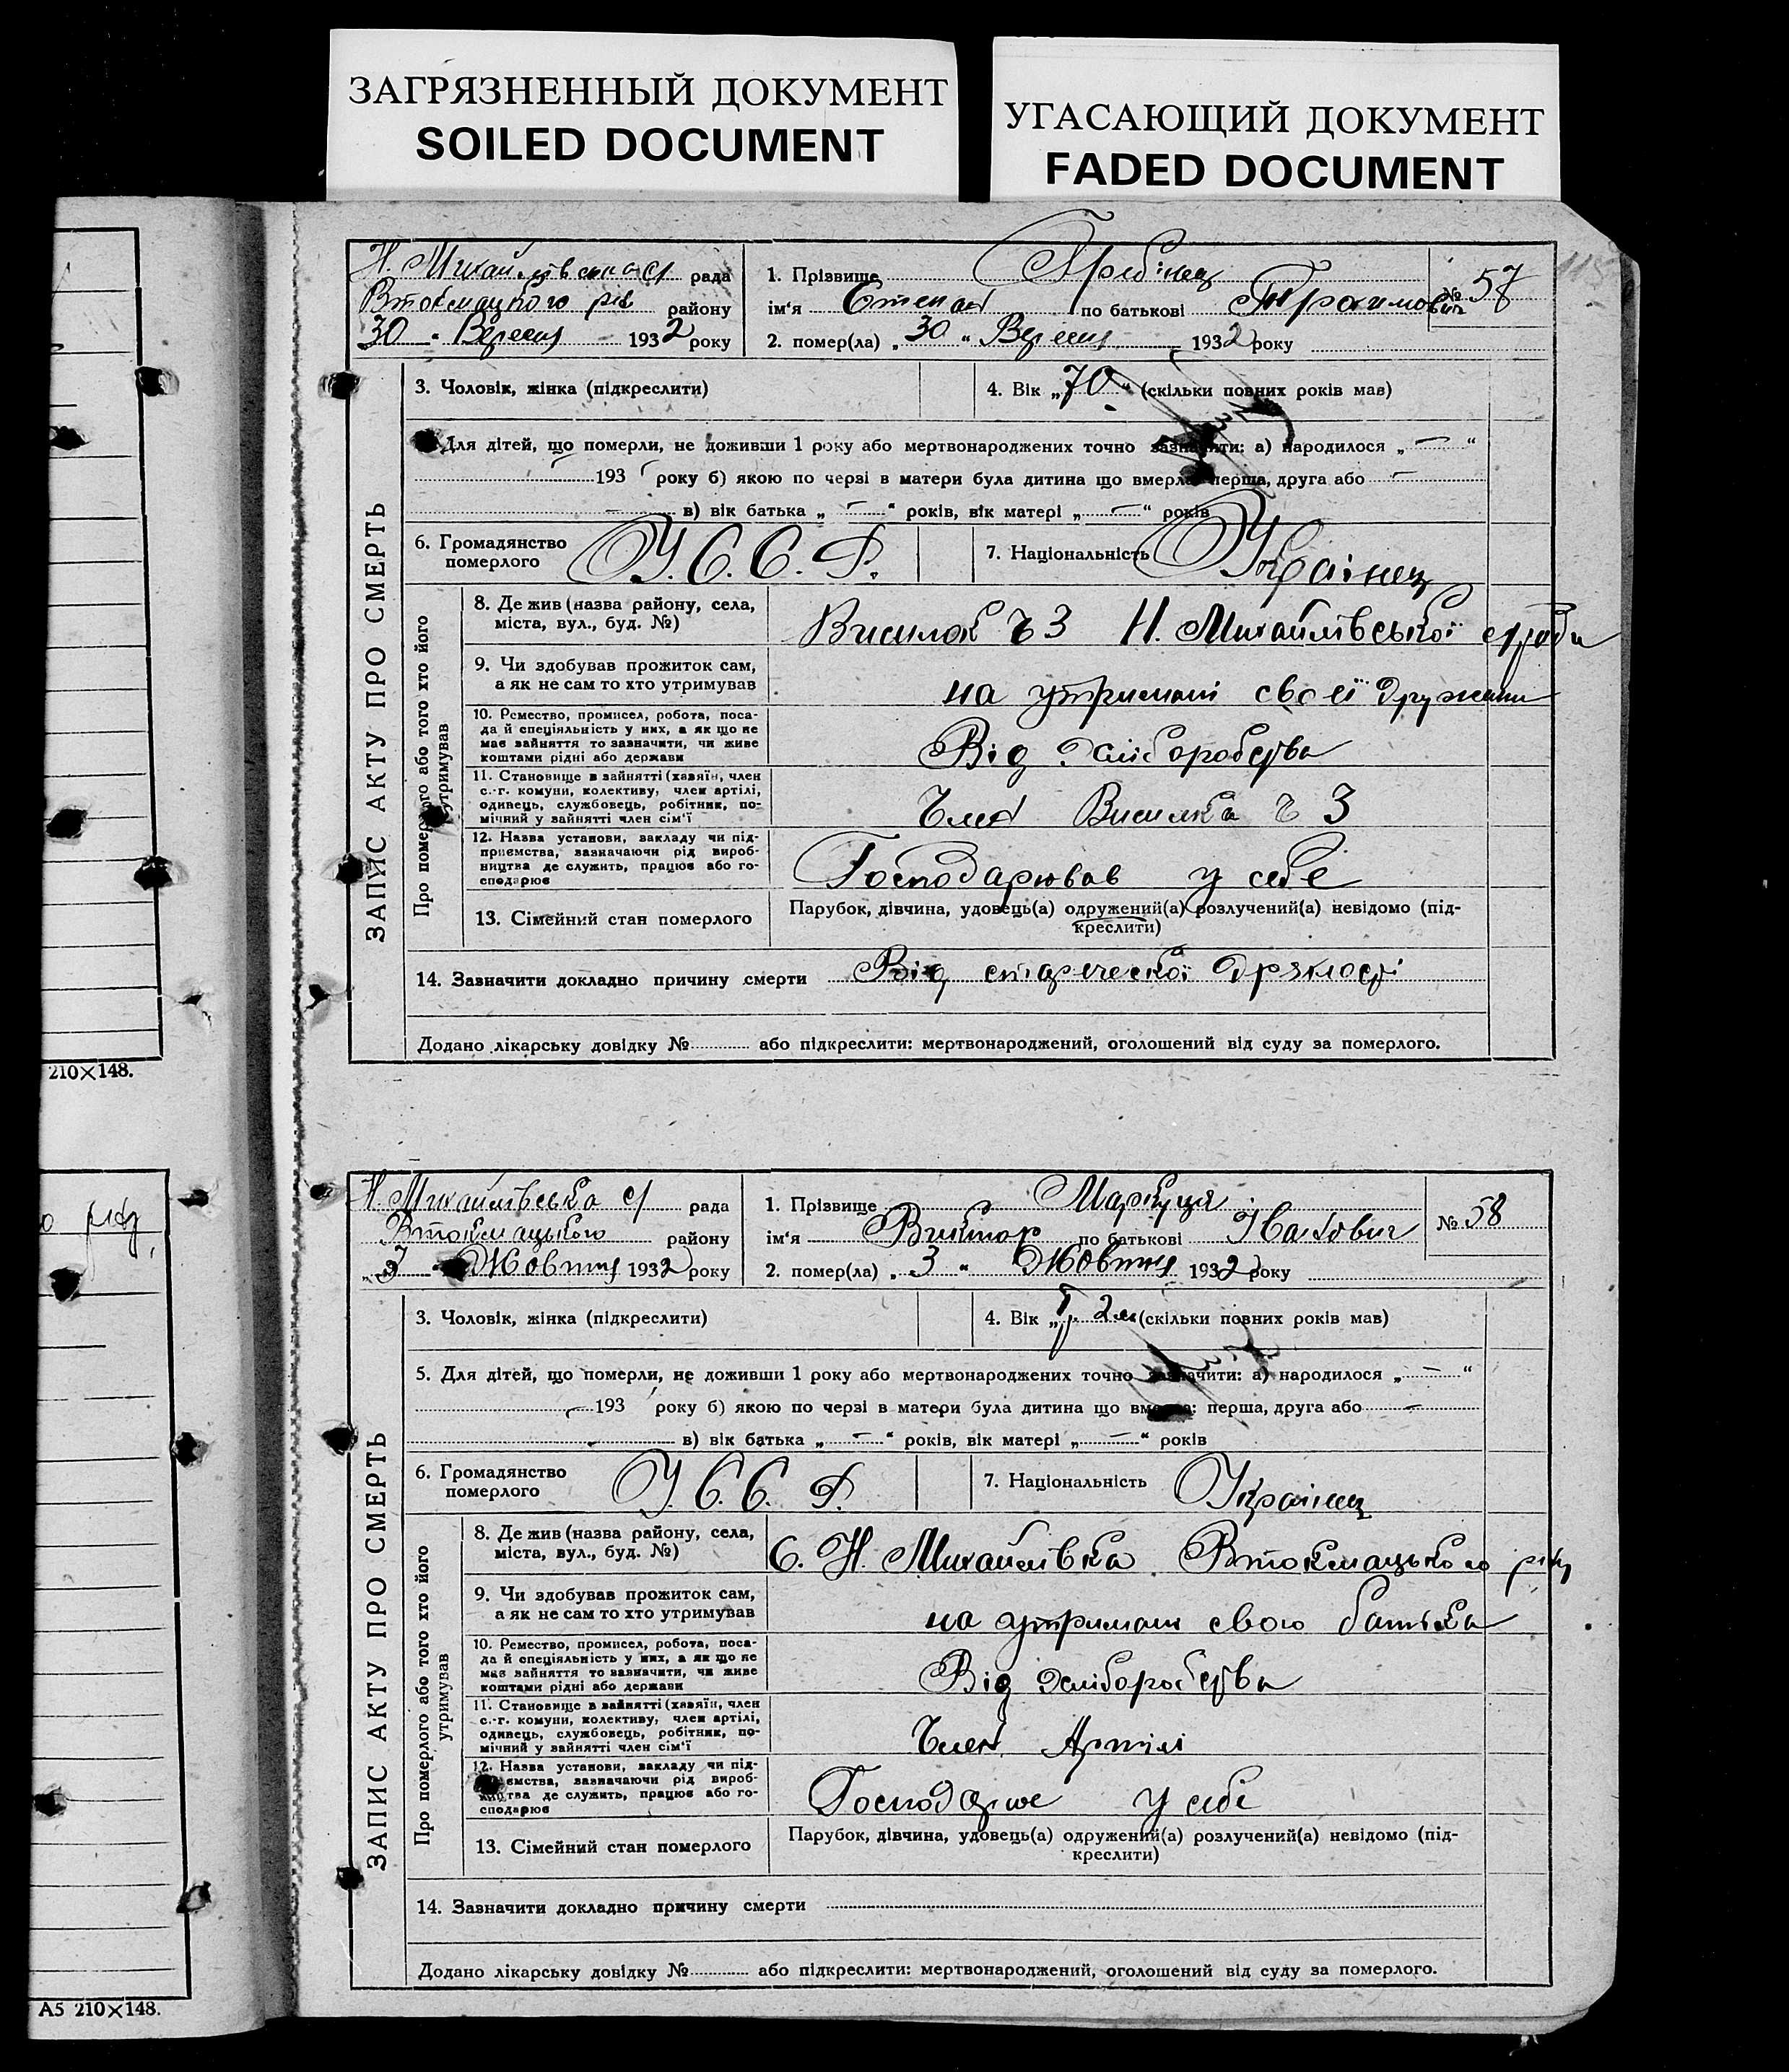 ЗАГРЯЗНЕННЫЙ ДОКУМЕНТ
SOILED DOCUMENT
УГАСАЮЩИЙ ДОКУМЕНТ
FADED DOCUMENT
210×148.
А5 210×148.
115
ЗАПИС АКТУ ПРО СМЕРТЬ
Н. Михайлівська с/ рада
Втокмацького рік району
„30“ Вересня 1932 року
1. Прізвище Гребінец
ім'я Степан по батькові Трохимович
№ 57
2. помер(ла) „30“ Вересня 1932 року
3. Чоловік, жінка (підкреслити)
4. Вік „70“ (скільки повних років мав)
Для дітей, що померли, не доживши 1 року або мертвонароджених точно зазначити: а) народилося „ — “
193 року б) якою по черзі в матери була дитина що вмерла: перша, друга або —
в) вік батька „ — “ років, вік матері „ — “ років
6. Громадянство померлого У. С. С. Р.
7. Національність Українец
Про померлого або того хто його утримував
8. Де жив (назва району, села,
міста, вул., буд. №)
Висилок Ч 3 Н. Михайлівської с/ради
9. Чи здобував прожиток сам,
а як не сам то хто утримував
на утримані своєї дружини
10. Ремество, промисел, робота, поса-
да й спеціяльність у них, а як що не
має зайняття то зазначити, чи живе
коштами рідні або держави
Від хліборобства
11. Становище в зайнятті (хазяїн, член
с.-г. комуни, колективу, член артілі,
одинець, службовець, робітник, по-
мічний у зайнятті член сім'ї
Член Висилка Ч 3
12. Назва установи, закладу чи під-
приємства, зазначаючи рід вироб-
ництва де служить, працює або го-
сподарює
Господарював у себе
13. Сімейний стан померлого
Парубок, дівчина, удовець(а) одружений(а) розлучений(а) невідомо (під-
креслити)
14. Зазначити докладно причину смерти Від старческої дряхлості
Додано лікарську довідку № або підкреслити: мертвонароджений, оголошений від суду за померлого.
ЗАПИС АКТУ ПРО СМЕРТЬ
Н. Михайлівська с/ рада
Втокмацького району
„3“ Жовтня 1932 року
1. Прізвище Маркуця
ім'я Виктор по батькові Іванович
№ 58
2. помер(ла) „3“ Жовтня 1932 року
3. Чоловік, жінка (підкреслити)
4. Вік „ 2 м (скільки повних років мав)
5. Для дітей, що померли, не доживши 1 року або мертвонароджених точно зазначити: а) народилося „ — “
193 року б) якою по черзі в матери була дитина що вмерла: перша, друга або —
в) вік батька „ — “ років, вік матері „ — “ років
6. Громадянство померлого У. С. С. Р.
7. Національність Українец
Про померлого або того хто його утримував
8. Де жив (назва району, села,
міста, вул., буд. №)
С. Н. Михайлівка Втокмацького р-ну
9. Чи здобував прожиток сам,
а як не сам то хто утримував
на утримані свого батька
10. Ремество, промисел, робота, поса-
да й спеціяльність у них, а як що не
має зайняття то зазначити, чи живе
коштами рідні або держави
Від хліборобства
11. Становище в зайнятті (хазяїн, член
с.-г. комуни, колективу, член артілі,
одинець, службовець, робітник, по-
мічний у зайнятті член сім'ї
Член Артілі
12. Назва установи, закладу чи під-
приємства, зазначаючи рід вироб-
ництва де служить, працює або го-
сподарює
Господарює у себе
13. Сімейний стан померлого
Парубок, дівчина, удовець(а) одружений(а) розлучений(а) невідомо (під-
креслити)
14. Зазначити докладно причину смерти
Додано лікарську довідку № або підкреслити: мертвонароджений, оголошений від суду за померлого.